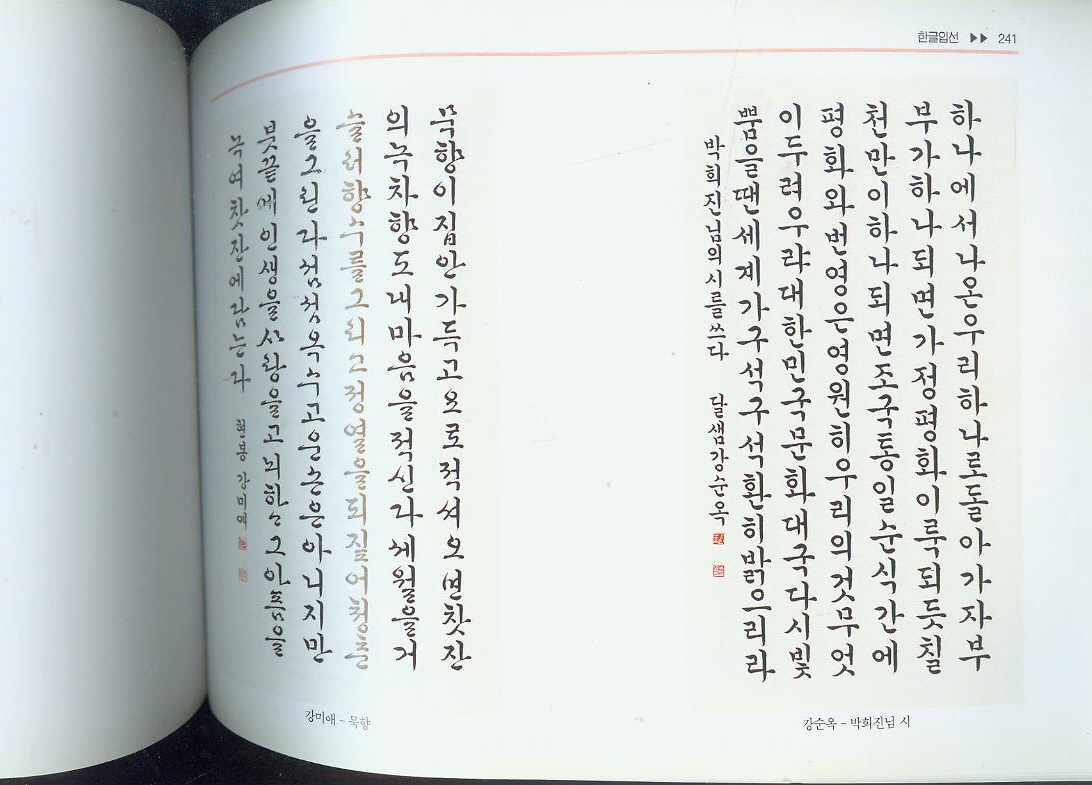 한글입선 ▶▶ 241
하나에서나온우리하나로돌아가자부
부가하나되면가정평화이룩되듯칠
천만이하나되면조국통일순식간에
평화와번영은영원히우리의것무엇
이두려우랴대한민국문화대국다시빛
뿜을땐세계가구석구석환히밝으리라
박희진님의시를쓰다 달샘강순옥
강순옥 - 박희진님 시
묵향이집안가득고요로적셔오면찻잔
의녹차향도내마음을적신다세월을거
슬러향수를그리고정열을되짚어청춘
을그린다섬섬옥수고운손은아니지만
붓끝에인생을사랑을고뇌하고그아픔을
녹여찻잔에담는다 현봉 강미애
강미애 - 묵향